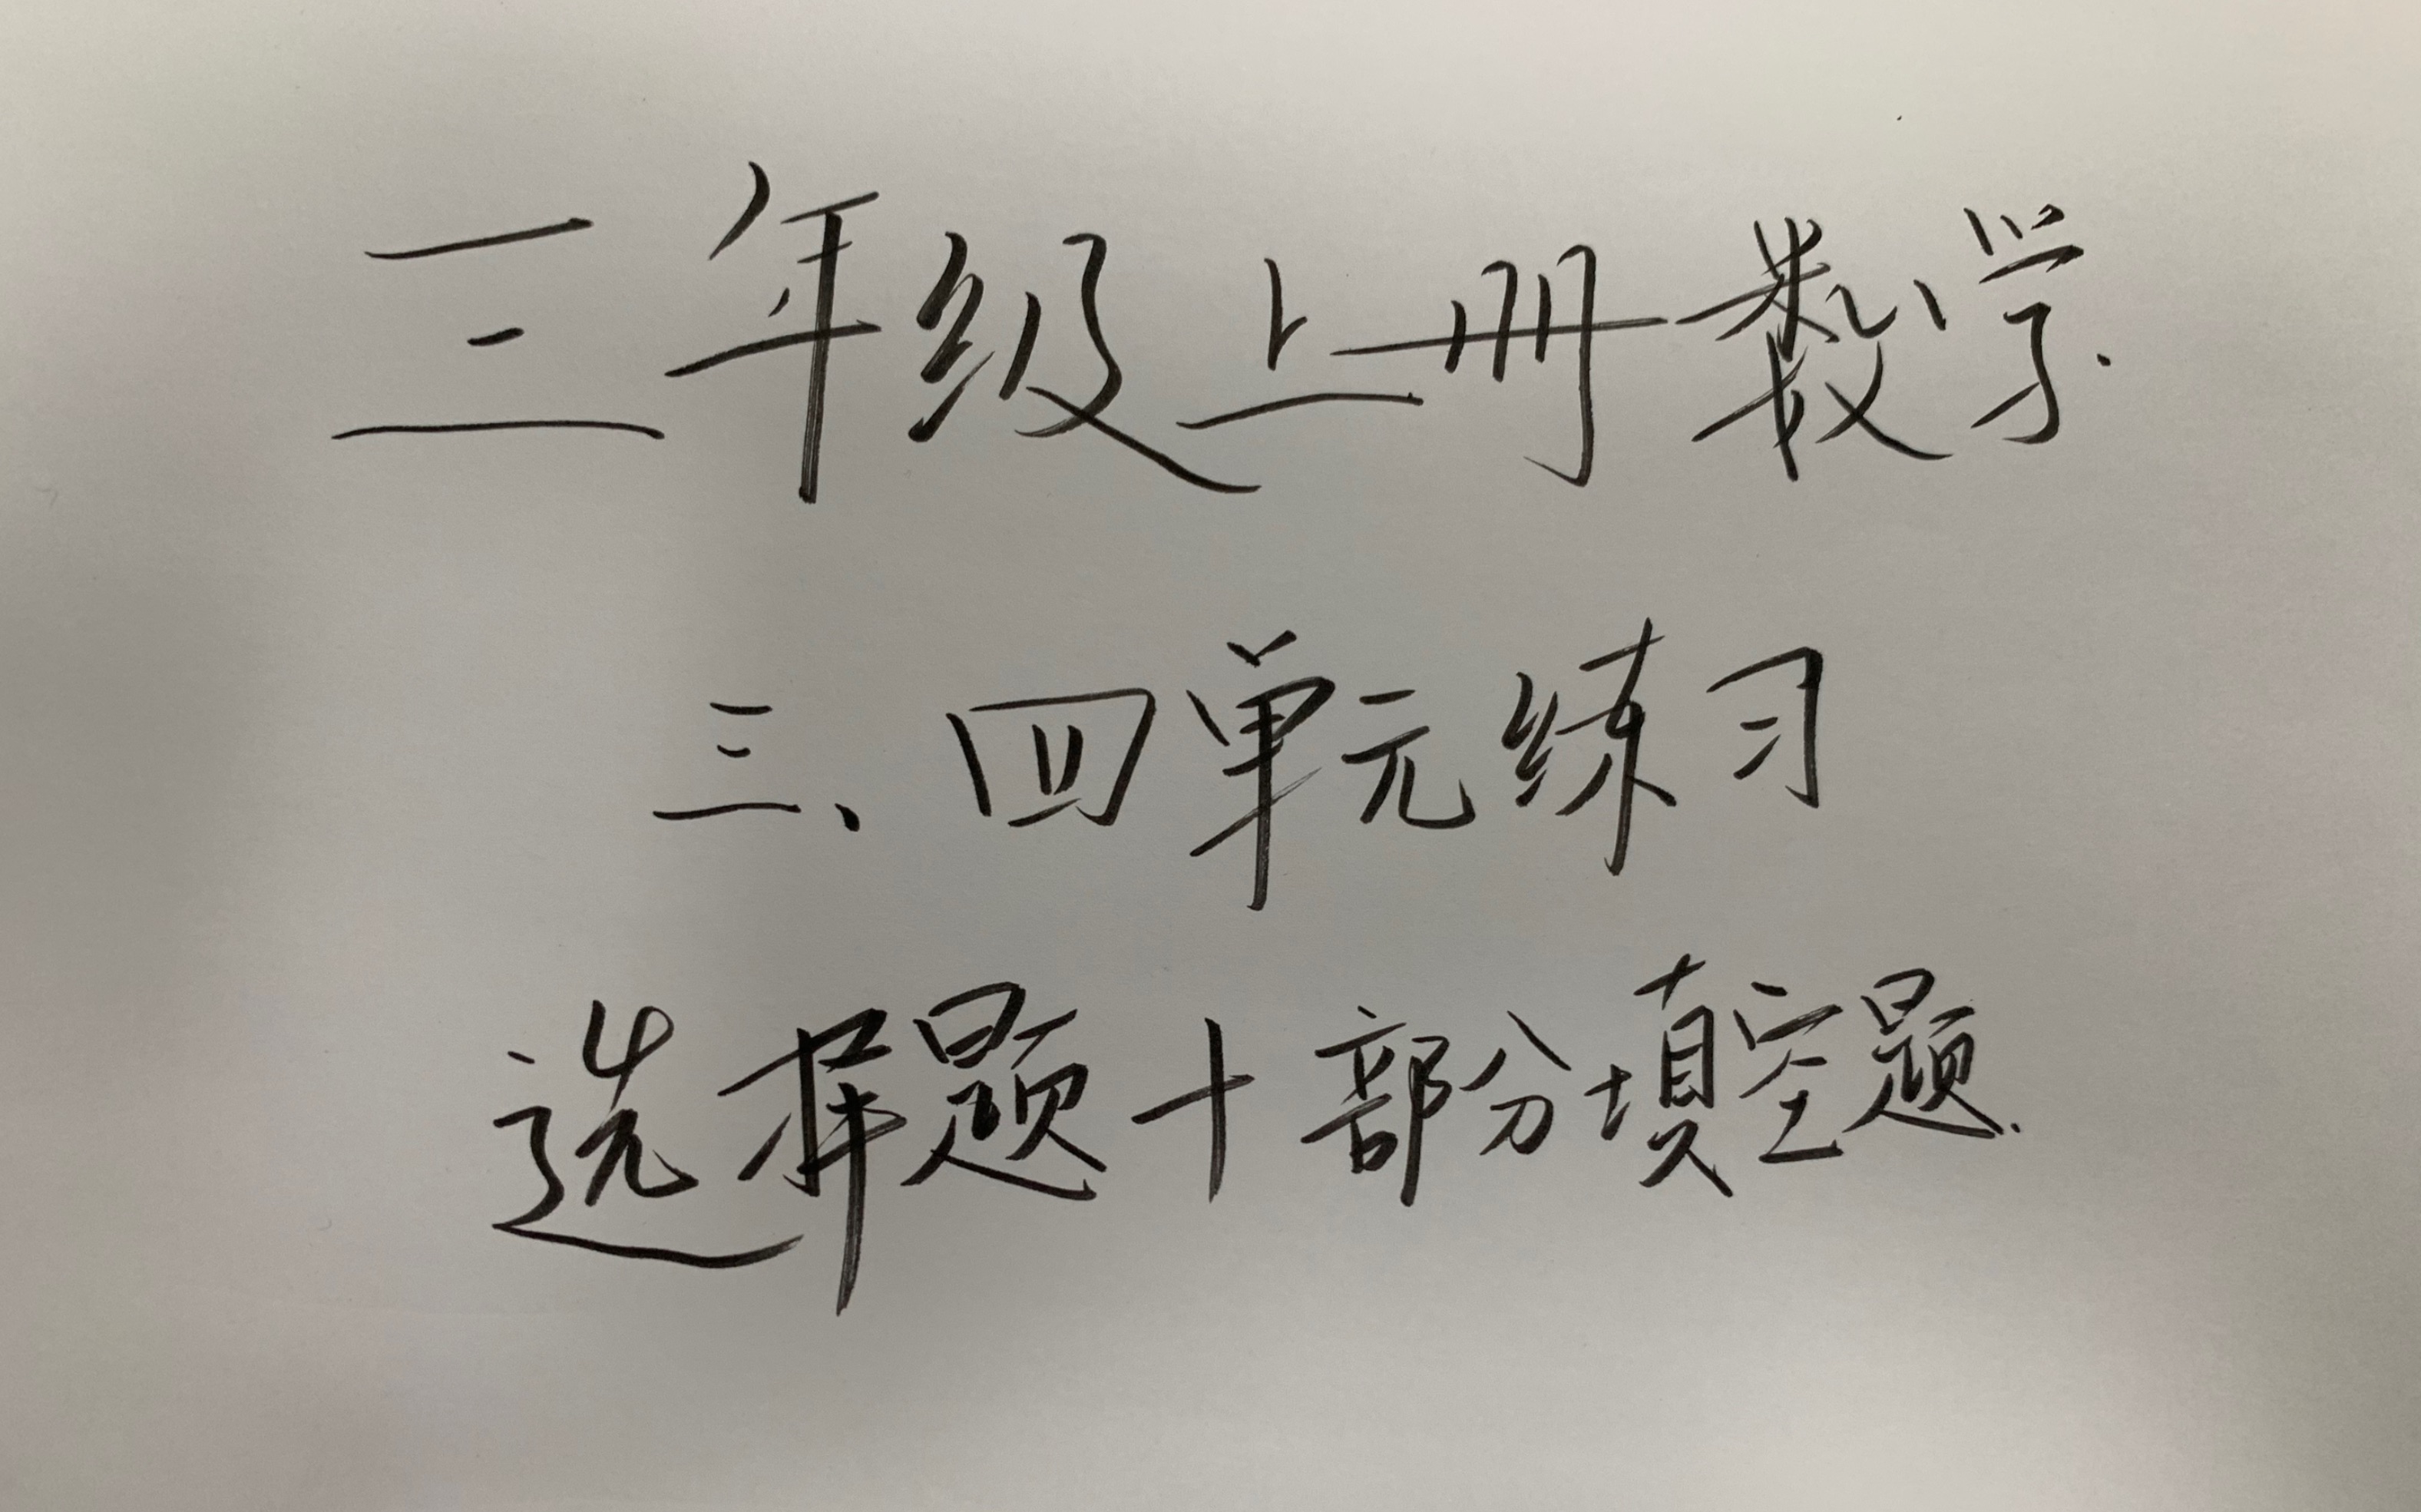 三年级上册数学.
三、四单元练习
选择题+部分填空题.